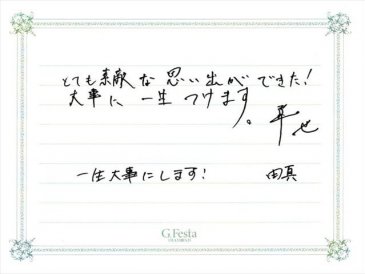 とても素敵な思い出ができた!
大事に一生つけます。
一生大事にします!
G.Festa